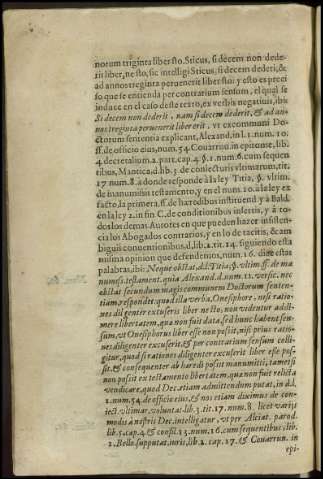 norum triginta liber sto. Sticus, si decem non dede-
rit liber, ne sto, sic intelligi Sticus, si decem dederit, &
ad annos treginta peruenerit liber stoi y esto es preci
so que se entienda per contrarium sensum, el qual se
induce en el caso deste texto, ex verbis negatiuis, ibi:
Si decem non dederit, nam si decem dederit, & ad an-
nos treginta peruenerit liber erit, vt ex communi Do-
ctorum sententia explicant, Alexand. in l. 1. num. 10.
ff. de officio eius, num. 54. Couarruu. in epitome, lib.
4. decretalium. 2. part. cap. 4. §. 1. num. 6. cum sequen
tibus, Mantica, d. lib. 3. de coniecturis vltimarum, tit.
17. num. 8. à donde responde à la ley Titia, §. vltim.
de manumissis testamento, y en el num. 10. à la ley ex
facto, la primera, ff. de hæredibus instituend. y à Bald.
en la ley 2. in fin C. de conditionibus insertis, y à to-
dos los demas Autores en que pueden hazer insisten-
cia los Abogados contrarios, y en lo de tacitis, & am
biguis conuentionibus, d. lib. 2. tit. 14. siguiendo esta
misma opinion que defendemos, num. 16. dize estas
palabras, ibi: Neque obstat, d. l. Titia, §. vltim. ff. de ma
numiss. testament. quia Alexand. d. num. 12. versic. nec
obstat secundum magis communem Doctorum senten-
tiam, respondet, quod illa verba, Onesiphore, nisi ratio-
nes diligenter excuteris liber ne sto, non videntur adi-
mere libertatem, qua non fuit data, sed hunc habent sen-
sum, vt Onesiphorus liber esse non possit, nisi prius ratio-
nes diligenter excuserit, & per contrarium sensum colli-
gitur, quod si rationes diligenter excuserit liber esse pos-
sit, & consequenter ab hæredis possit manumitti, tametsi
non possit ex testamento libertatem, qua non fuit relicta
vendicare, quod Dec. etiam admittendum putat, in d. l.
1. num. 54. de officio eius, & nos etiam diximus de con-
iect. vltimar. voluntat. lib. 3. tit. 17. num. 8. licet varijs
modis à nostris Dec. intelligatur, vt per Alciat. parod.
lib. 5. cap. 4. & consil. 13. num. 16. cum sequentibus, lib.
2. Bello. supputat. iuris, lib. 2. cap. 17. & Couarruu. in
epi-